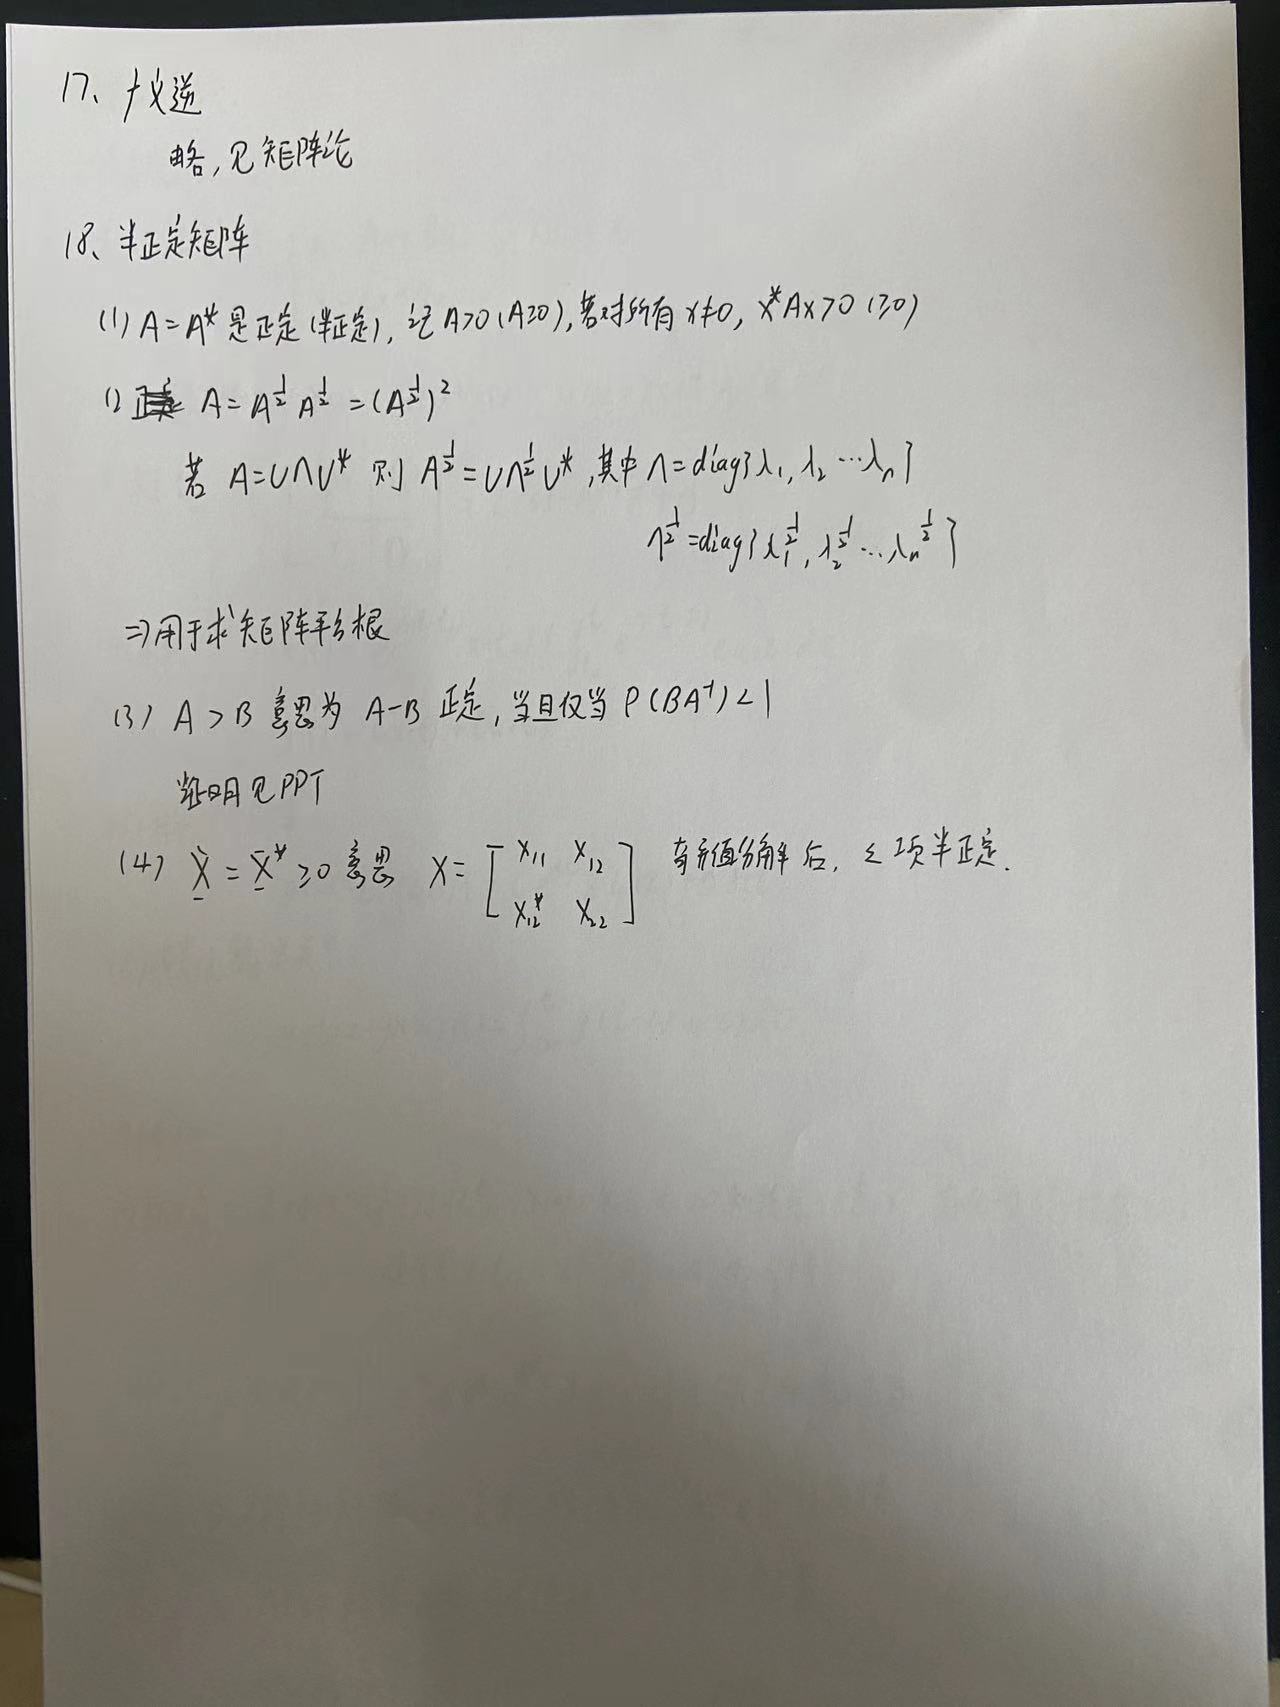 17、广义逆
略,见矩阵论
18、半正定矩阵
(1) A=A* 是正定(半正定), 记 A>0 (A≥0), 若对所有 x≠0, x*Ax>0 (≥0)
(2 A=A^{1/2} A^{1/2} =(A^{1/2})^2
若 A=UΛU* 则 A^{1/2}=UΛ^{1/2}U*, 其中 Λ=diag{λ1, λ2 …λn}
Λ^{1/2}=diag{λ1^{1/2}, λ2^{1/2} …λn^{1/2}}
⇒用于求矩阵平方根
(3) A>B 意思为 A-B 正定, 当且仅当 ρ(BA^{-1})<1
证明见PPT
(4) X = X* ≥0 意思 X= [X11 X12
X12* X22] 奇异值分解后, Σ项半正定.